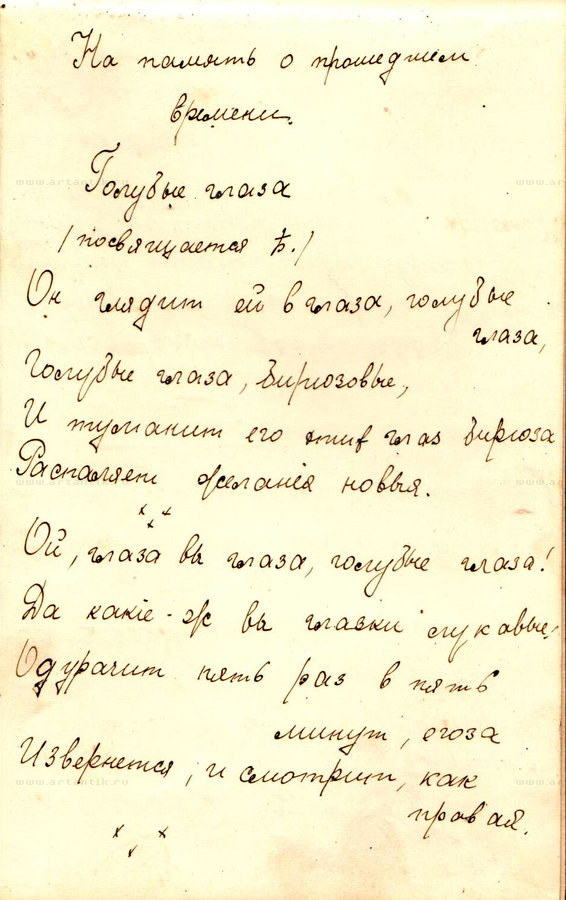 На память о прошедшем
времени.
Голубые глаза
/посвящается Ѣ./
Он глядит ей в глаза, голубые
глаза,
Голубые глаза, бирюзовые,
И туманит его этих глаз бирюза
Распаляет желанія новыя.
x x x
Ой, глаза вы глаза, голубые глаза!
Да какіе-ж вы глазки лукавые,
Одурачит пять раз в пять
минут, егоза
Извернется, и смотрит, как
правая.
x x x
www.artantik.ru